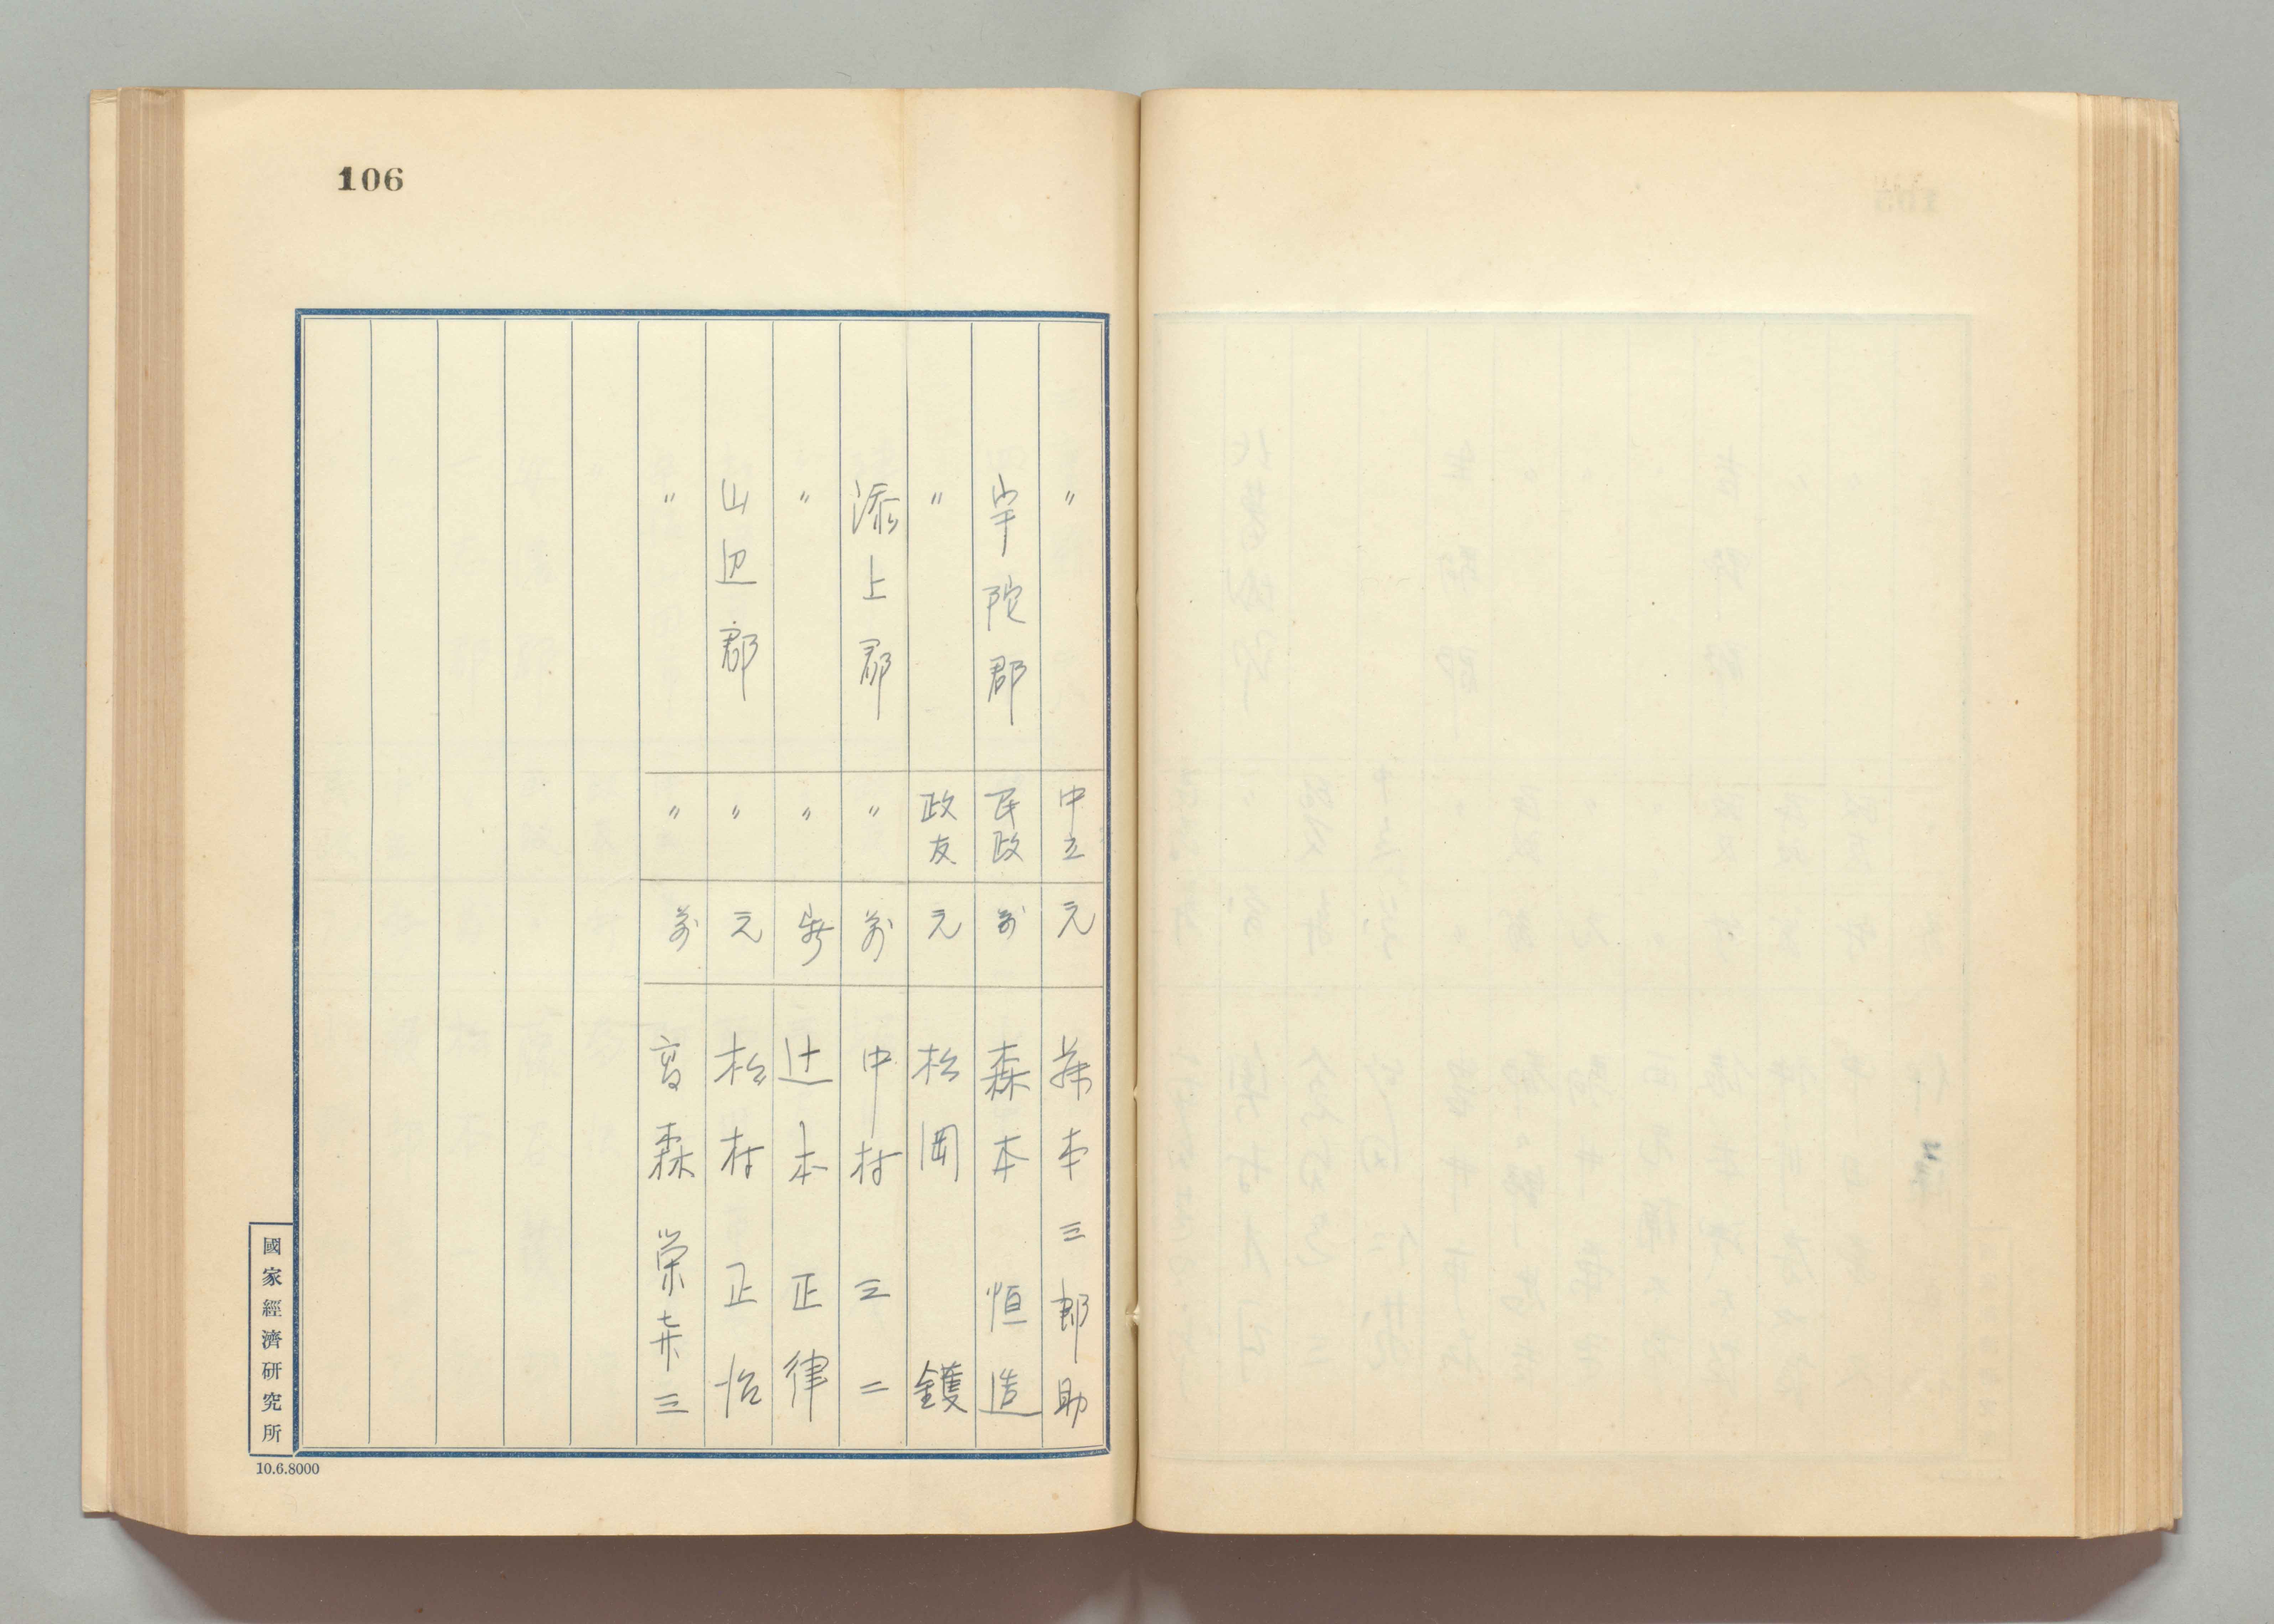 106
〃 中立 元 藤本三郎助
宇陀郡 民政 前 森本恒造
〃 政友 元 松岡鑊
添上郡 〃 前 中村三二
〃 〃 新 辻本正律
山辺郡 〃 元 松村正怡
〃 〃 前 森栄𠀋三
國家經濟研究所
10.6.8000